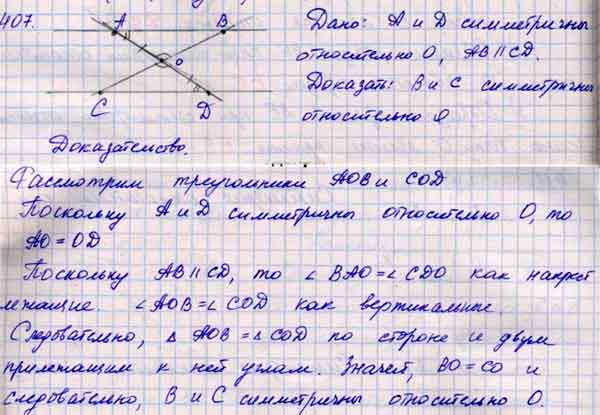 407.
A B
O
C D
Дано: А и D симметричны
относительно О, AB || CD.
Доказать: В и С симметричны
относительно О
Доказательство.
Рассмотрим треугольники AOB и COD
Поскольку А и D симметричны относительно О, то
AO = OD
Поскольку AB || CD, то ∠ BAO = ∠ CDO как накрест
лежащие. ∠ AOB = ∠ COD как вертикальные.
Следовательно, △ AOB = △ COD по стороне и двум
прилежащим к ней углам. Значит, BO = CO и
следовательно, В и С симметричны относительно О.